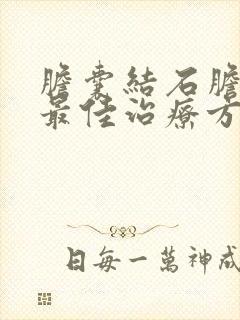 膽囊結石膽
最佳治療方
日每一萬神成